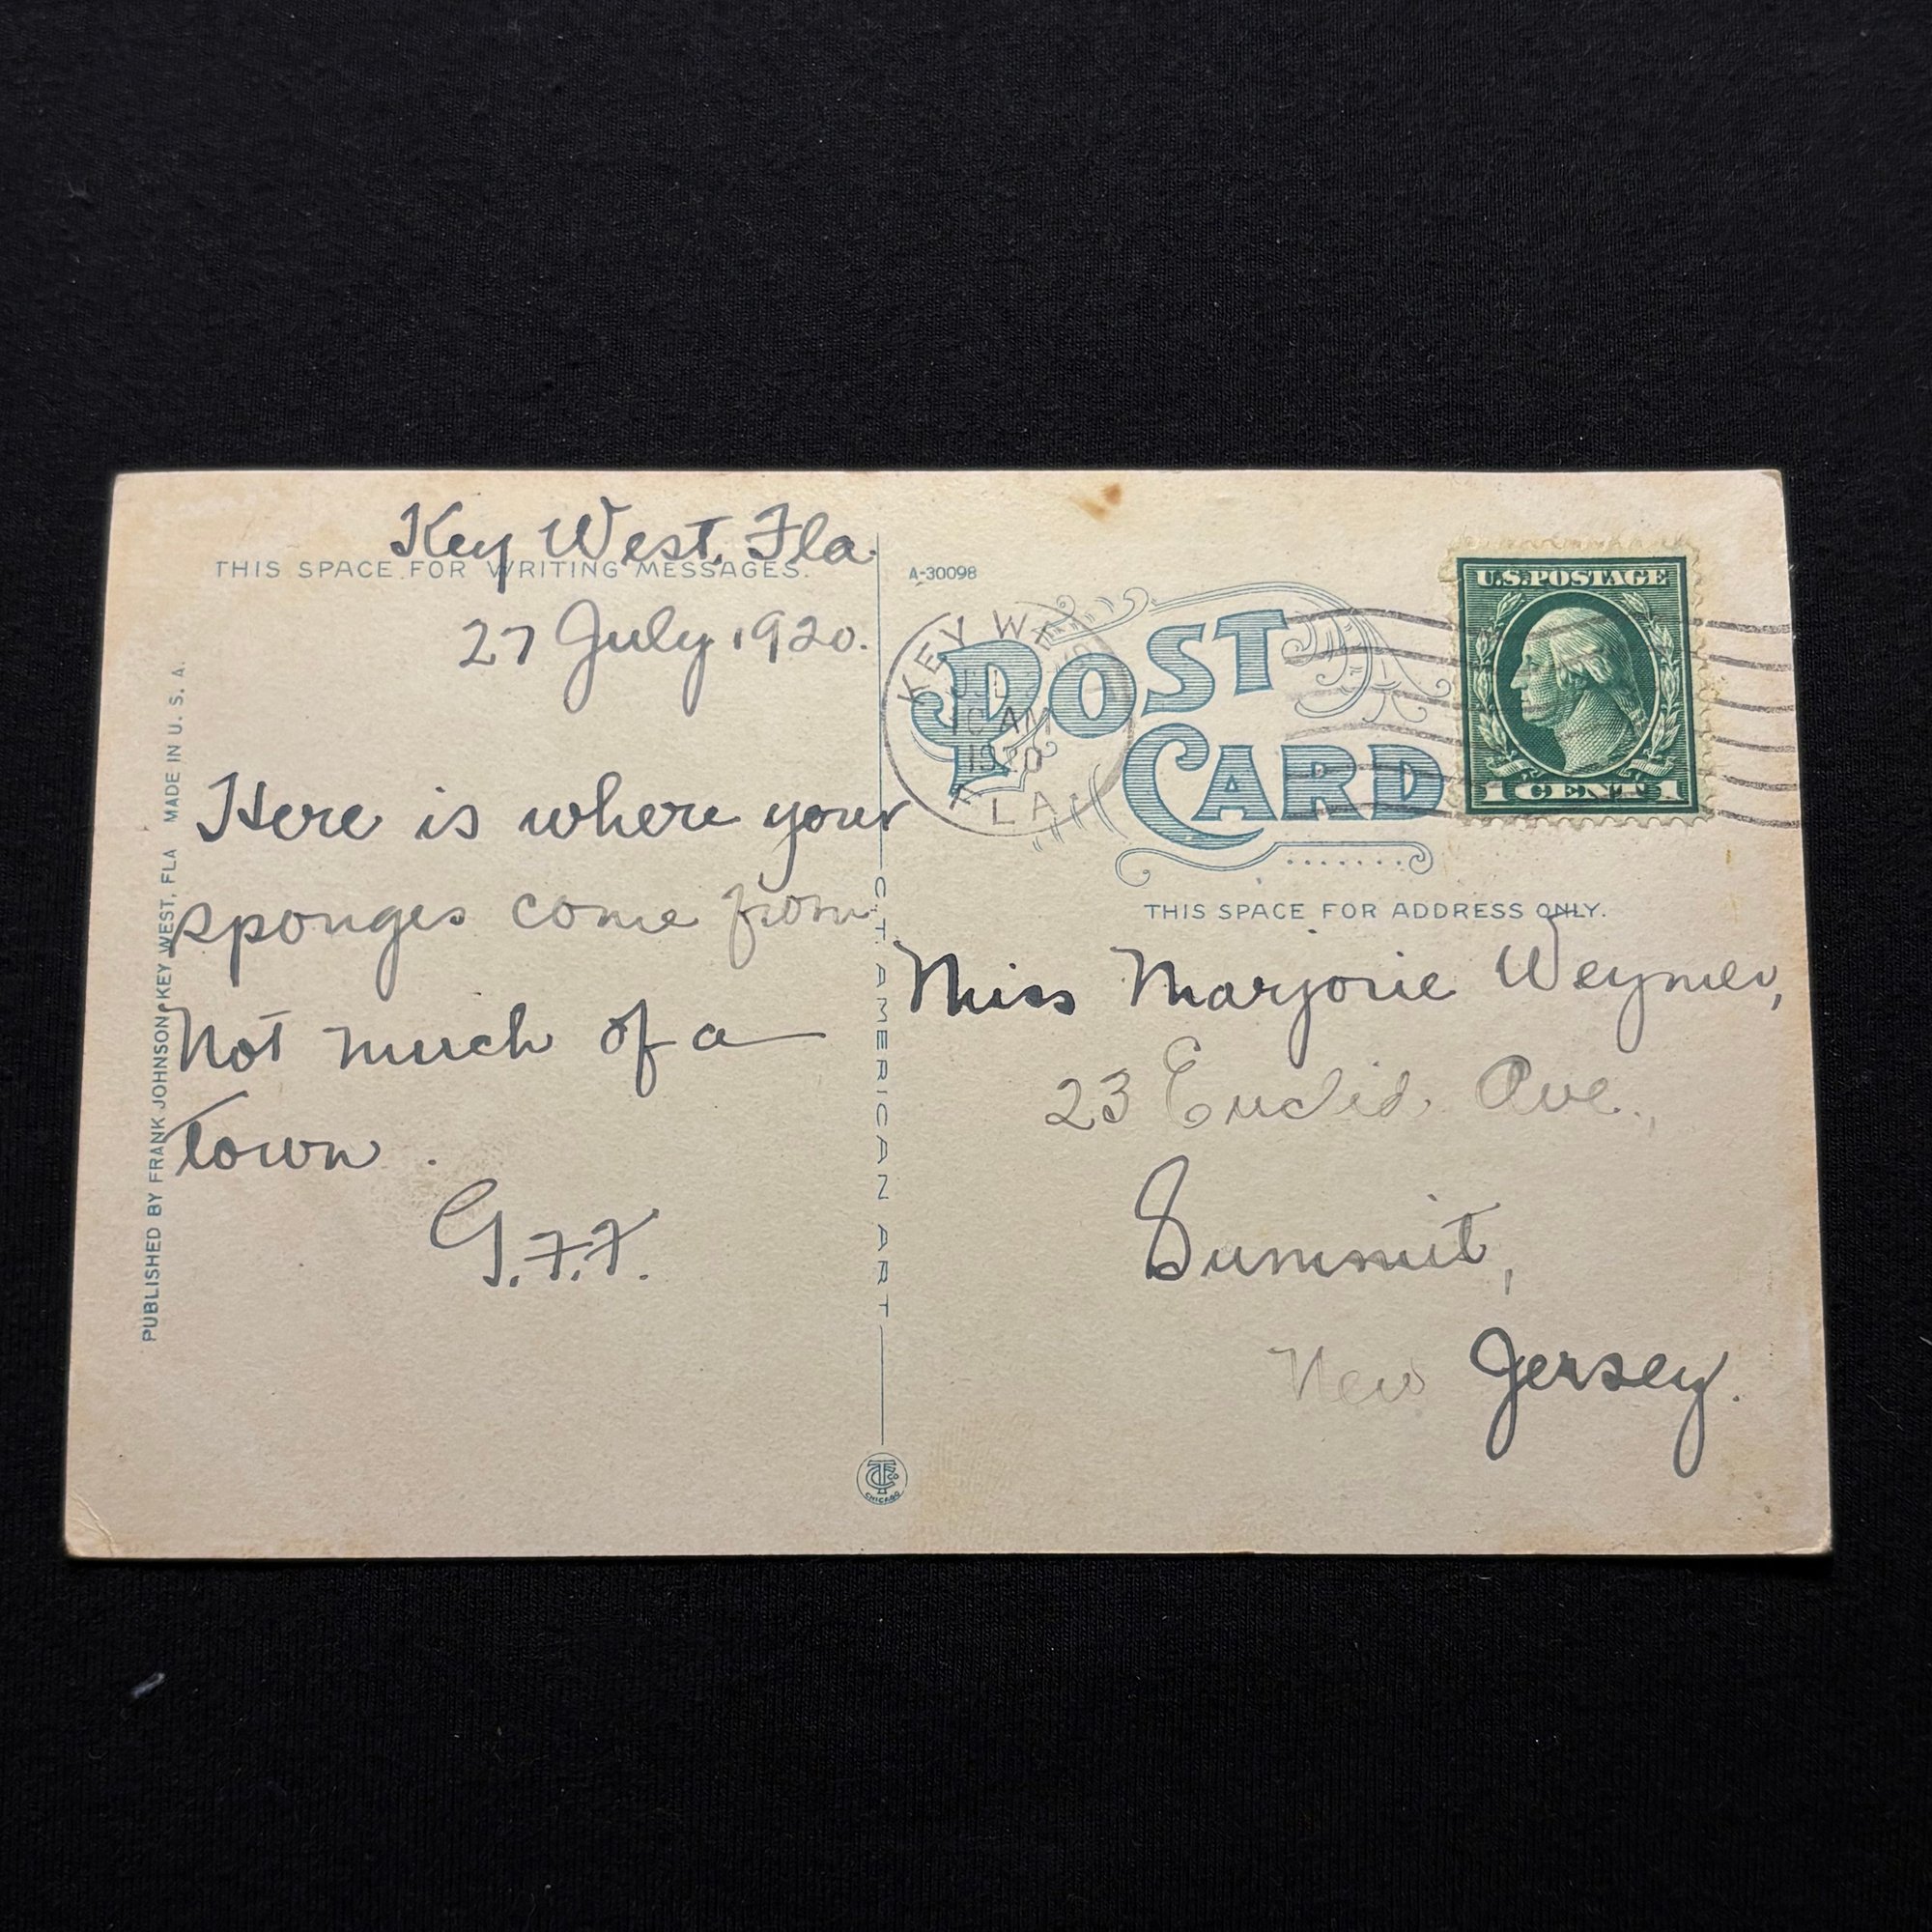 Key West, Fla.
THIS SPACE FOR WRITING MESSAGES.
27 July 1920.
Here is where your
sponges come from
Not much of a
town.
G.F.F.
PUBLISHED BY FRANK JOHNSON, KEY WEST, FLA MADE IN U. S. A.
C. T. AMERICAN ART
CHICAGO
A-30098
POST
CARD
KEY WE
JUL
10 AM
1920
FLA.
U.S. POSTAGE
1 CENT 1
THIS SPACE FOR ADDRESS ONLY.
Miss Marjorie Weymer,
23 Euclid Ave.,
Summit,
New Jersey.